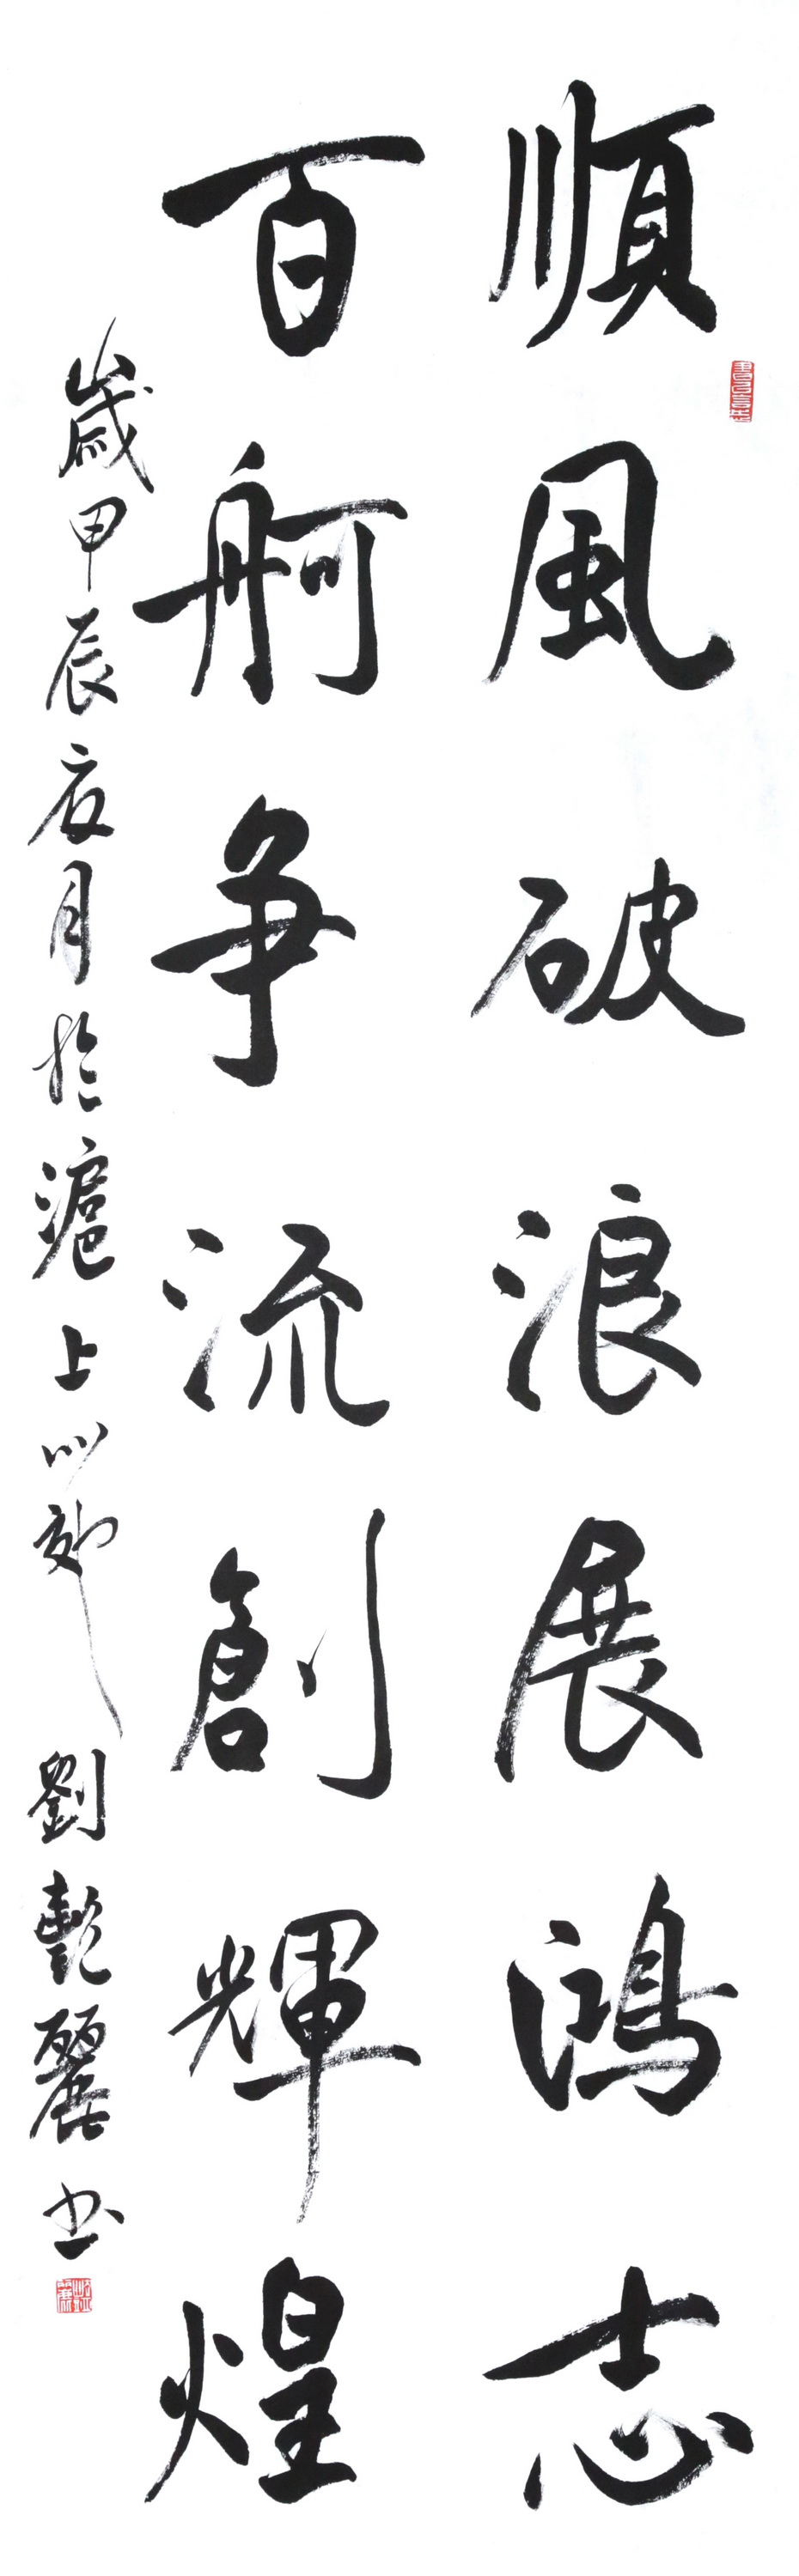 順風破浪展鴻志
百舸争流創輝煌
歲甲辰夏月於滬上 劉艷麗书